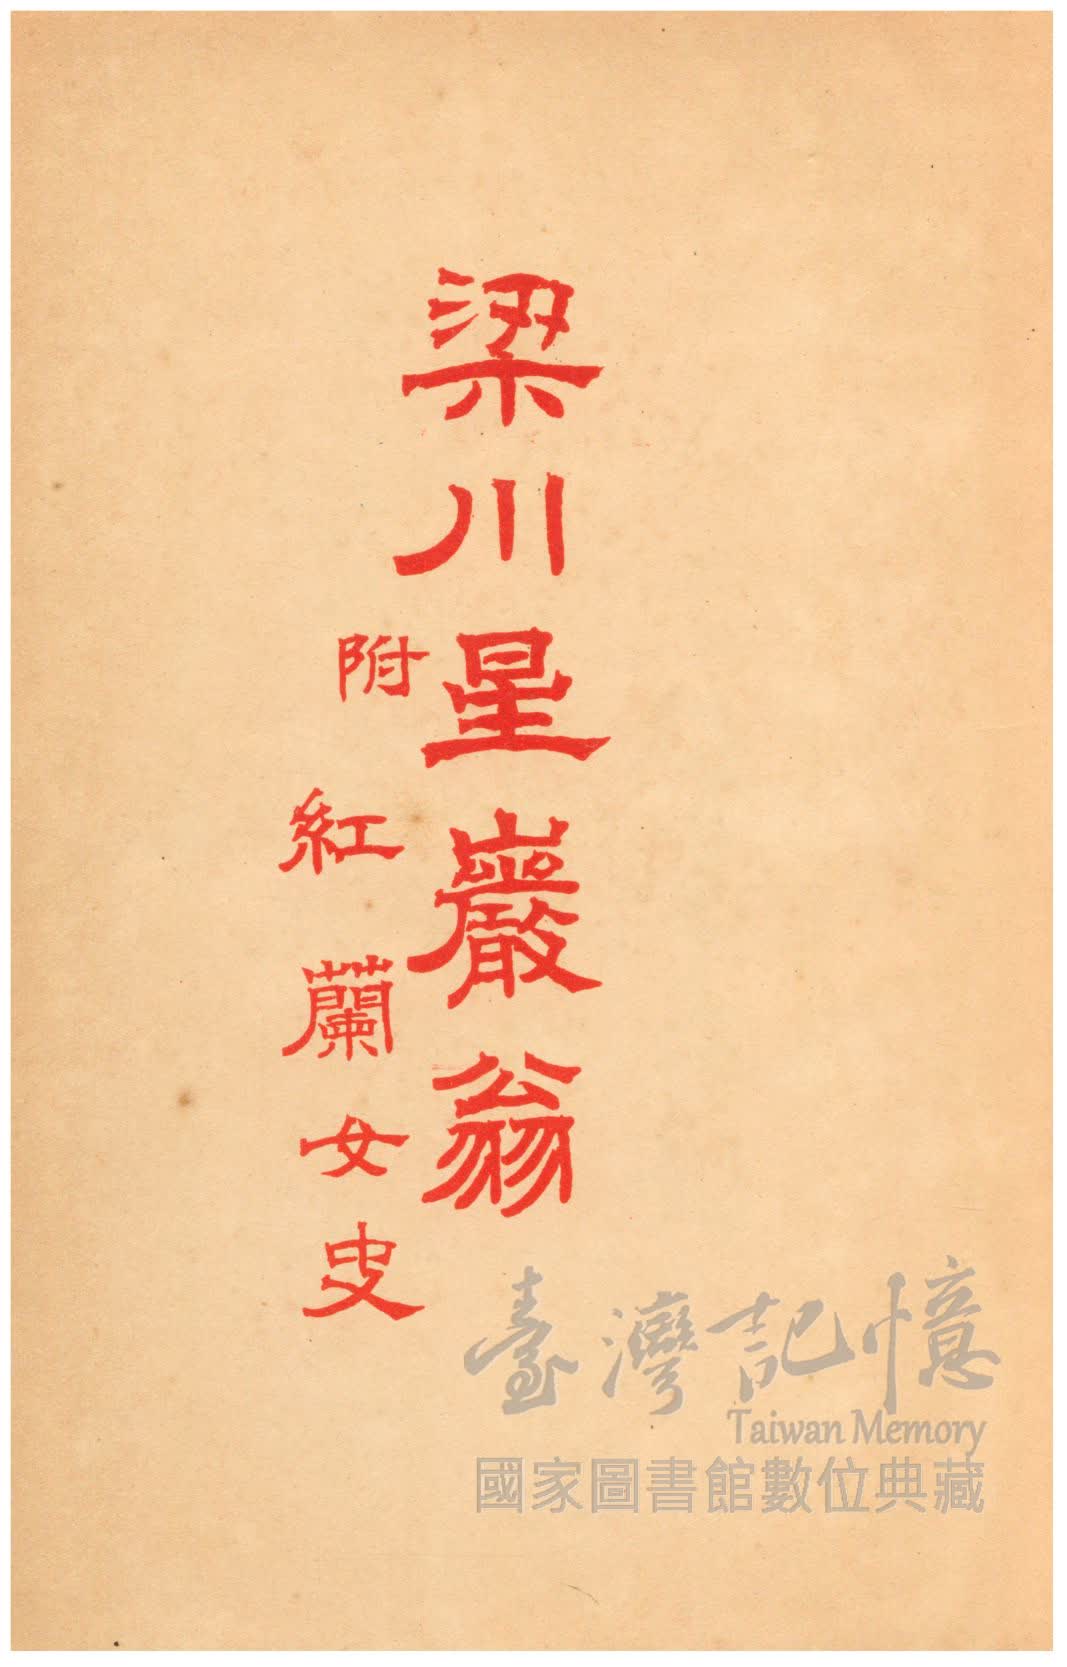 梁川星巖翁
附紅蘭女史
臺灣記憶
Taiwan Memory
國家圖書館數位典藏